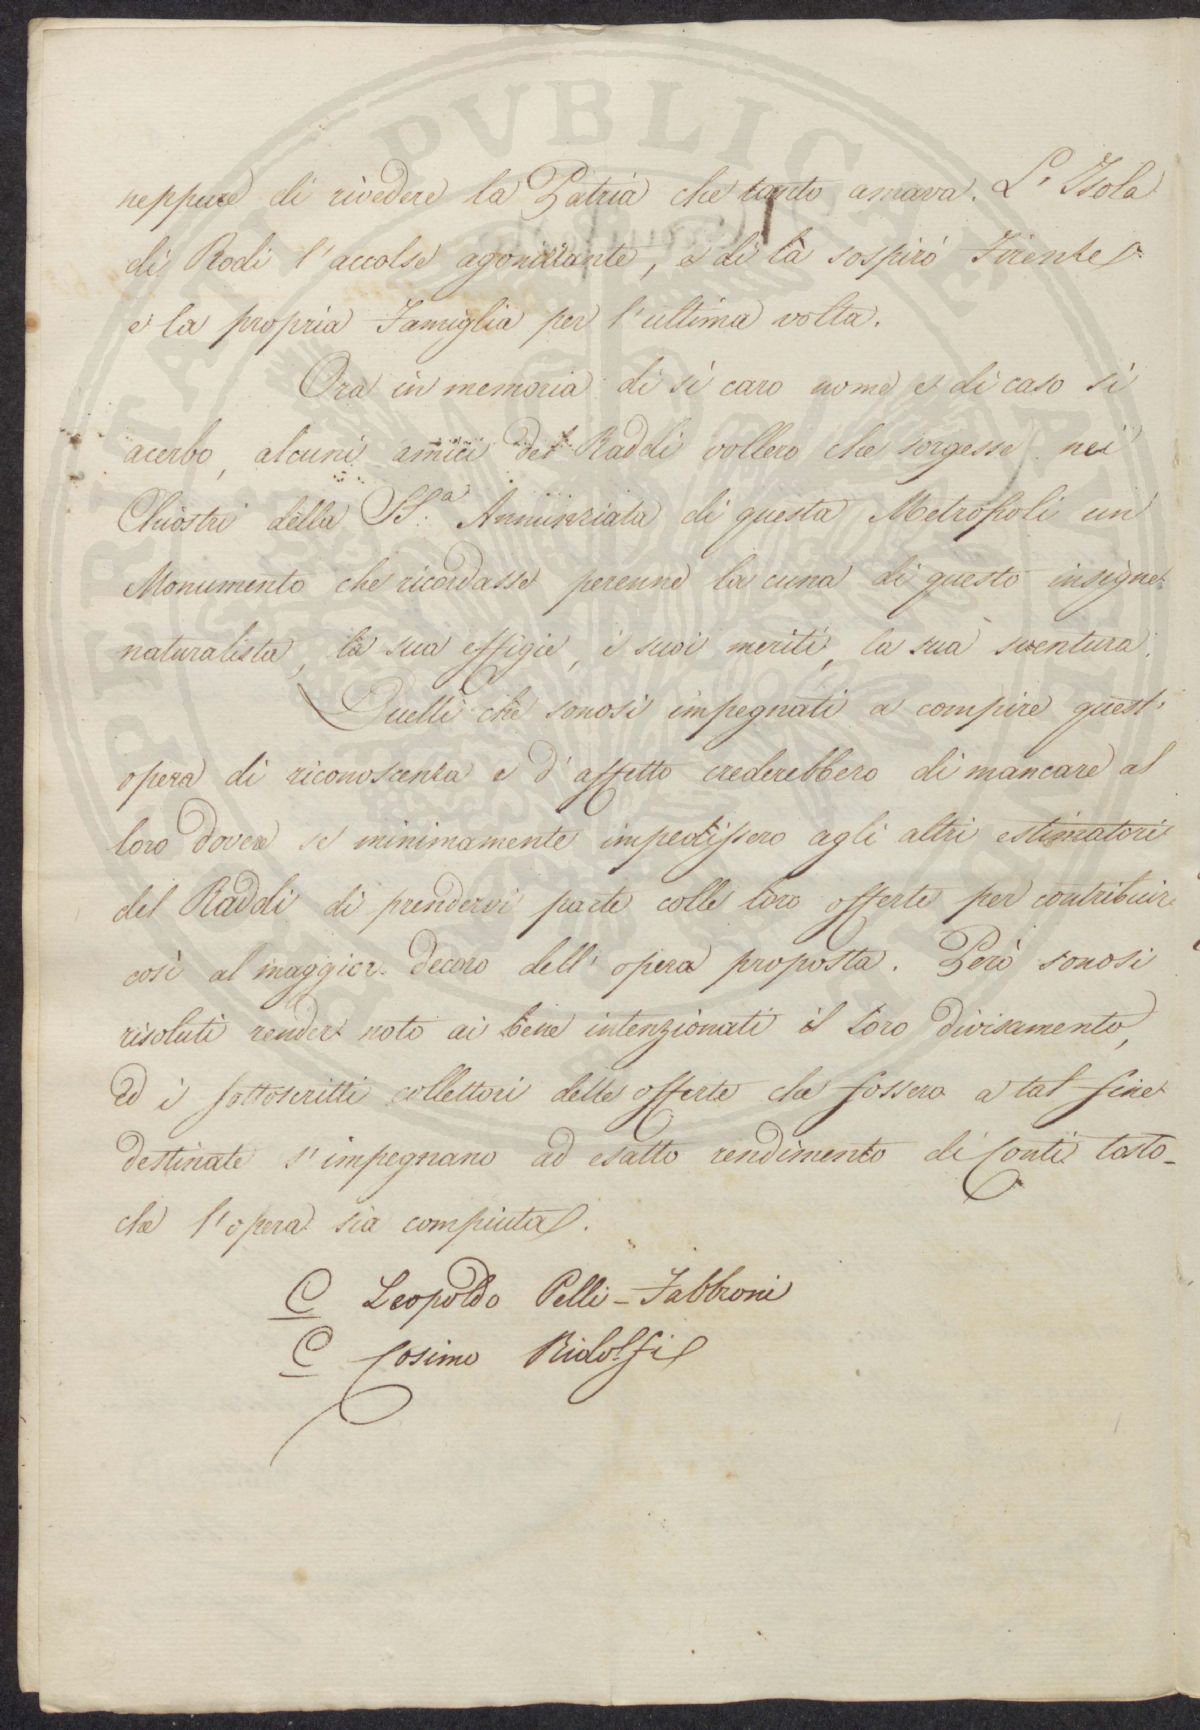 neppure di rivedere la Patria che tanto amava. L' Isola
di Rodi l'accolse agonizzante, e di là sospirò Firenze
e la propria Famiglia per l'ultima volta.
Ora in memoria di sì caro nome e di caso sì
acerbo, alcuni amici del Raddi vollero che sorgesse nei
Chiostri della SS.a Annunziata di questa Metropoli un
Monumento che ricordasse perenne la cuna di questo insigne
naturalista, la sua effigie, i suoi meriti, la sua sventura.
Quelli che sonosi impegnati a compire quest'
opera di riconoscenza e d'affetto crederebbero di mancare al
loro dovere se minimamente impedissero agli altri estimatori
del Raddi di prendervi parte colle loro offerte per contribuire
così al maggior decoro dell' opera proposta. Però sonosi
risoluti render noto ai bene intenzionati il loro divisamento,
ed i sottoscritti collettori delle offerte che fossero a tal fine
destinate s'impegnano ad esatto rendimento di Conti tosto-
che l'opera sia compiuta.
C Leopoldo Pelli-Fabbroni
C Cosimo Ridolfi